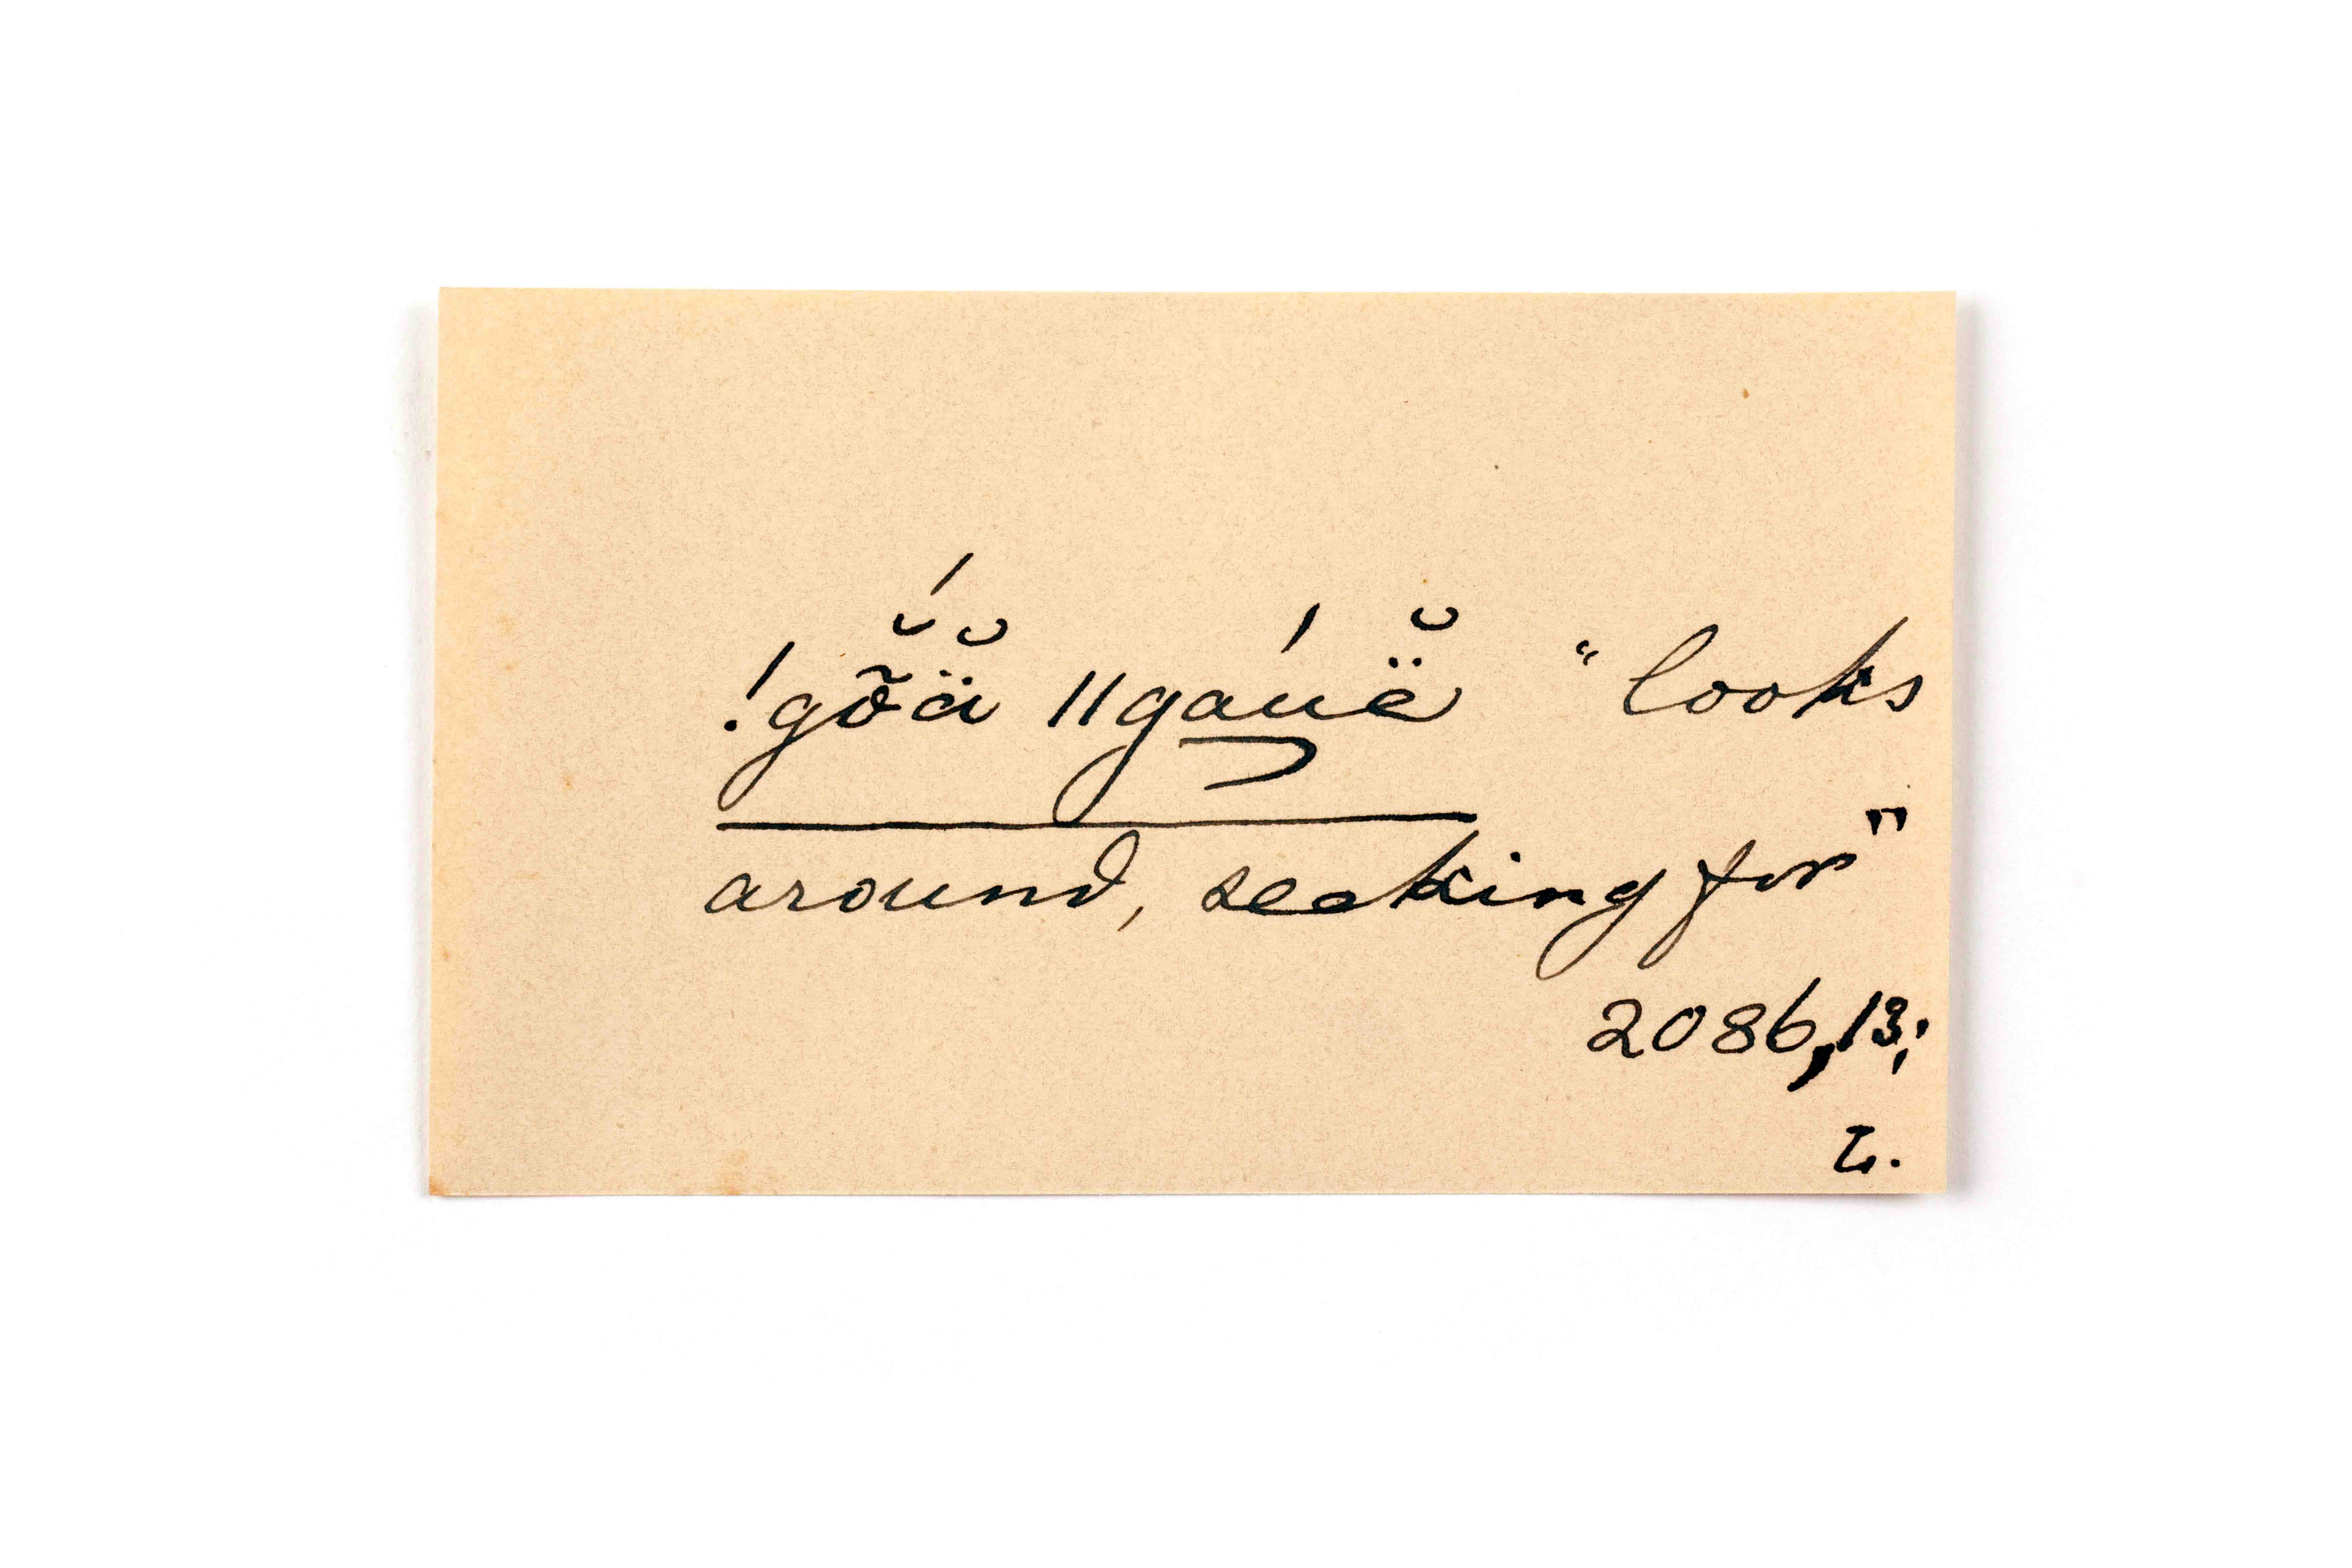 !gõ̆ä̆́ ǁgáu̱ë̆ "looks
around, seeking for"
2086,13;
L.